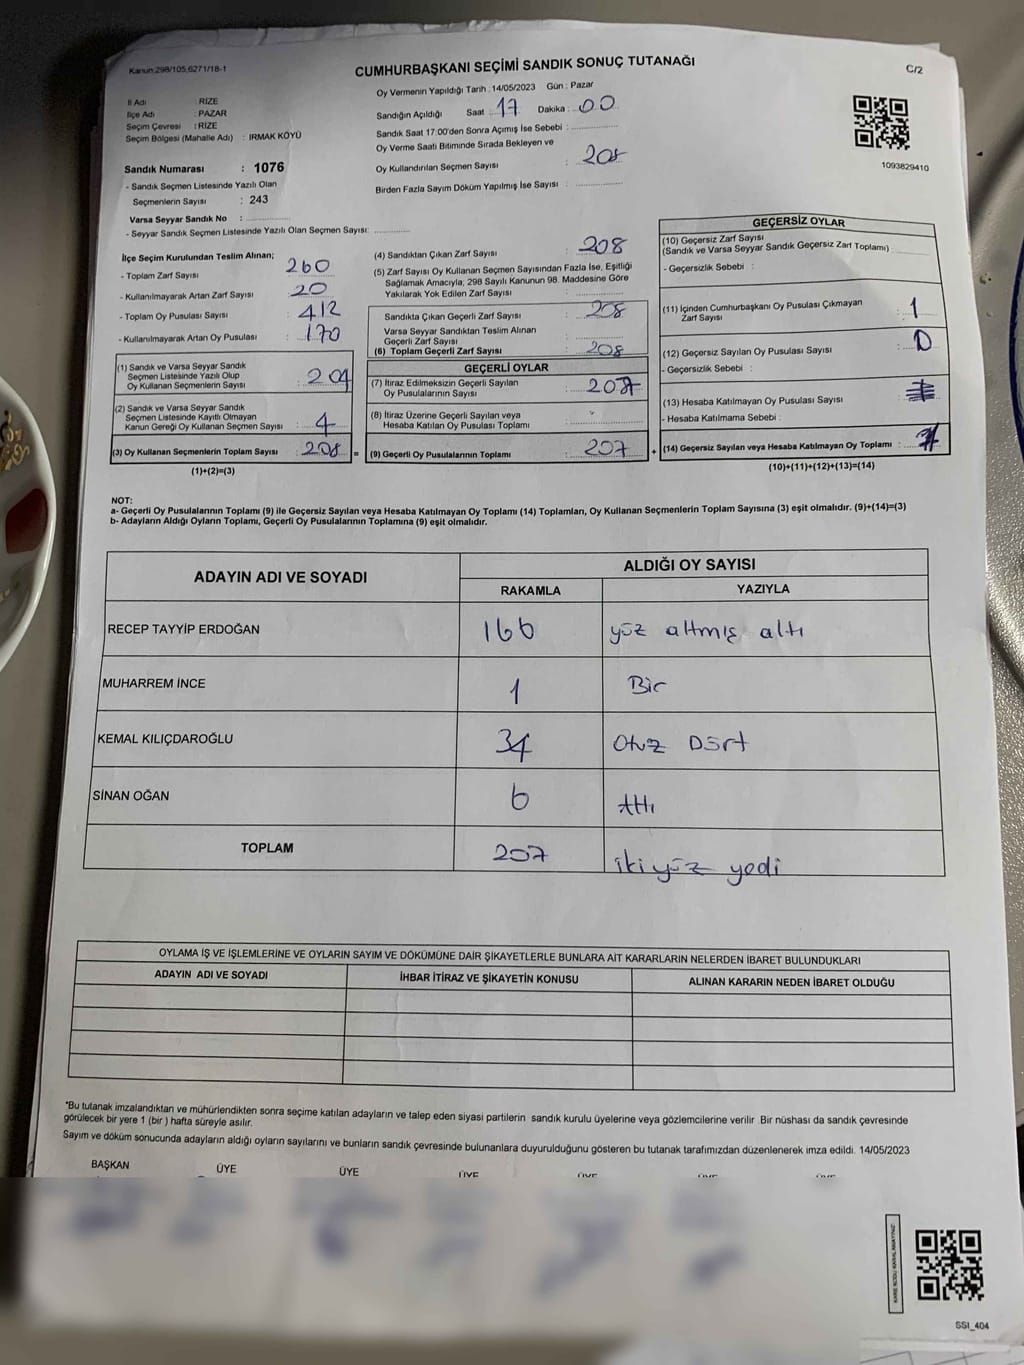 Kanun:298/105,6271/18-1
CUMHURBAŞKANI SEÇİMİ SANDIK SONUÇ TUTANAĞI
C/2
İl Adı : RİZE
İlçe Adı : PAZAR
Seçim Çevresi : RİZE
Seçim Bölgesi (Mahalle Adı) : IRMAK KÖYÜ
Sandık Numarası : 1076
- Sandık Seçmen Listesinde Yazılı Olan
Seçmenlerin Sayısı : 243
Varsa Seyyar Sandık No :
- Seyyar Sandık Seçmen Listesinde Yazılı Olan Seçmen Sayısı:
Oy Vermenin Yapıldığı Tarih : 14/05/2023 Gün : Pazar
Sandığın Açıldığı Saat : 17 Dakika : 00
Sandık Saat 17:00'den Sonra Açımış İse Sebebi :
Oy Verme Saati Bitiminde Sırada Bekleyen ve
Oy Kullandırılan Seçmen Sayısı : 208
Birden Fazla Sayım Döküm Yapılmış İse Sayısı :
1093829410
İlçe Seçim Kurulundan Teslim Alınan;
- Toplam Zarf Sayısı : 260
- Kullanılmayarak Artan Zarf Sayısı : 20
- Toplam Oy Pusulası Sayısı : 412
- Kullanılmayarak Artan Oy Pusulası : 170
(1) Sandık ve Varsa Seyyar Sandık
Seçmen Listesinde Yazılı Olup
Oy Kullanan Seçmenlerin Sayısı : 204
(2) Sandık ve Varsa Seyyar Sandık
Seçmen Listesinde Kayıtlı Olmayan
Kanun Gereği Oy Kullanan Seçmen Sayısı : 4
(3) Oy Kullanan Seçmenlerin Toplam Sayısı : 208
(1)+(2)=(3)
(4) Sandıktan Çıkan Zarf Sayısı : 208
(5) Zarf Sayısı Oy Kullanan Seçmen Sayısından Fazla İse, Eşitliği
Sağlamak Amacıyla, 298 Sayılı Kanunun 98. Maddesine Göre
Yakılarak Yok Edilen Zarf Sayısı :
Sandıkta Çıkan Geçerli Zarf Sayısı : 208
Varsa Seyyar Sandıktan Teslim Alınan
Geçerli Zarf Sayısı :
(6) Toplam Geçerli Zarf Sayısı : 208
GEÇERLİ OYLAR
(7) İtiraz Edilmeksizin Geçerli Sayılan
Oy Pusulalarının Sayısı : 207
(8) İtiraz Üzerine Geçerli Sayılan veya
Hesaba Katılan Oy Pusulası Toplamı :
= (9) Geçerli Oy Pusulalarının Toplamı : 207 +
GEÇERSİZ OYLAR
(10) Geçersiz Zarf Sayısı
(Sandık ve Varsa Seyyar Sandık Geçersiz Zarf Toplamı)
- Geçersizlik Sebebi :
(11) İçinden Cumhurbaşkanı Oy Pusulası Çıkmayan
Zarf Sayısı : 1
(12) Geçersiz Sayılan Oy Pusulası Sayısı : 0
- Geçersizlik Sebebi :
(13) Hesaba Katılmayan Oy Pusulası Sayısı :
- Hesaba Katılmama Sebebi :
(14) Geçersiz Sayılan veya Hesaba Katılmayan Oy Toplamı :
(10)+(11)+(12)+(13)=(14)
NOT:
a- Geçerli Oy Pusulalarının Toplamı (9) ile Geçersiz Sayılan veya Hesaba Katılmayan Oy Toplamı (14) Toplamları, Oy Kullanan Seçmenlerin Toplam Sayısına (3) eşit olmalıdır. (9)+(14)=(3)
b- Adayların Aldığı Oyların Toplamı, Geçerli Oy Pusulalarının Toplamına (9) eşit olmalıdır.
ADAYIN ADI VE SOYADI
ALDIĞI OY SAYISI
RAKAMLA YAZIYLA
RECEP TAYYİP ERDOĞAN 166 yüz altmış altı
MUHARREM İNCE 1 Bir
KEMAL KILIÇDAROĞLU 34 Otuz Dört
SİNAN OĞAN 6 Altı
TOPLAM 207 iki yüz yedi
OYLAMA İŞ VE İŞLEMLERİNE VE OYLARIN SAYIM VE DÖKÜMÜNE DAİR ŞİKAYETLERLE BUNLARA AİT KARARLARIN NELERDEN İBARET BULUNDUKLARI
ADAYIN ADI VE SOYADI İHBAR İTİRAZ VE ŞİKAYETİN KONUSU ALINAN KARARIN NEDEN İBARET OLDUĞU
*Bu tutanak imzalandıktan ve mühürlendikten sonra seçime katılan adayların ve talep eden siyasi partilerin sandık kurulu üyelerine veya gözlemcilerine verilir. Bir nüshası da sandık çevresinde
görülecek bir yere 1 (bir ) hafta süreyle asılır.
Sayım ve döküm sonucunda adayların aldığı oyların sayılarını ve bunların sandık çevresinde bulunanlara duyurulduğunu gösteren bu tutanak tarafımızdan düzenlenerek imza edildi. 14/05/2023
BAŞKAN ÜYE ÜYE ÜYE
SSI_404